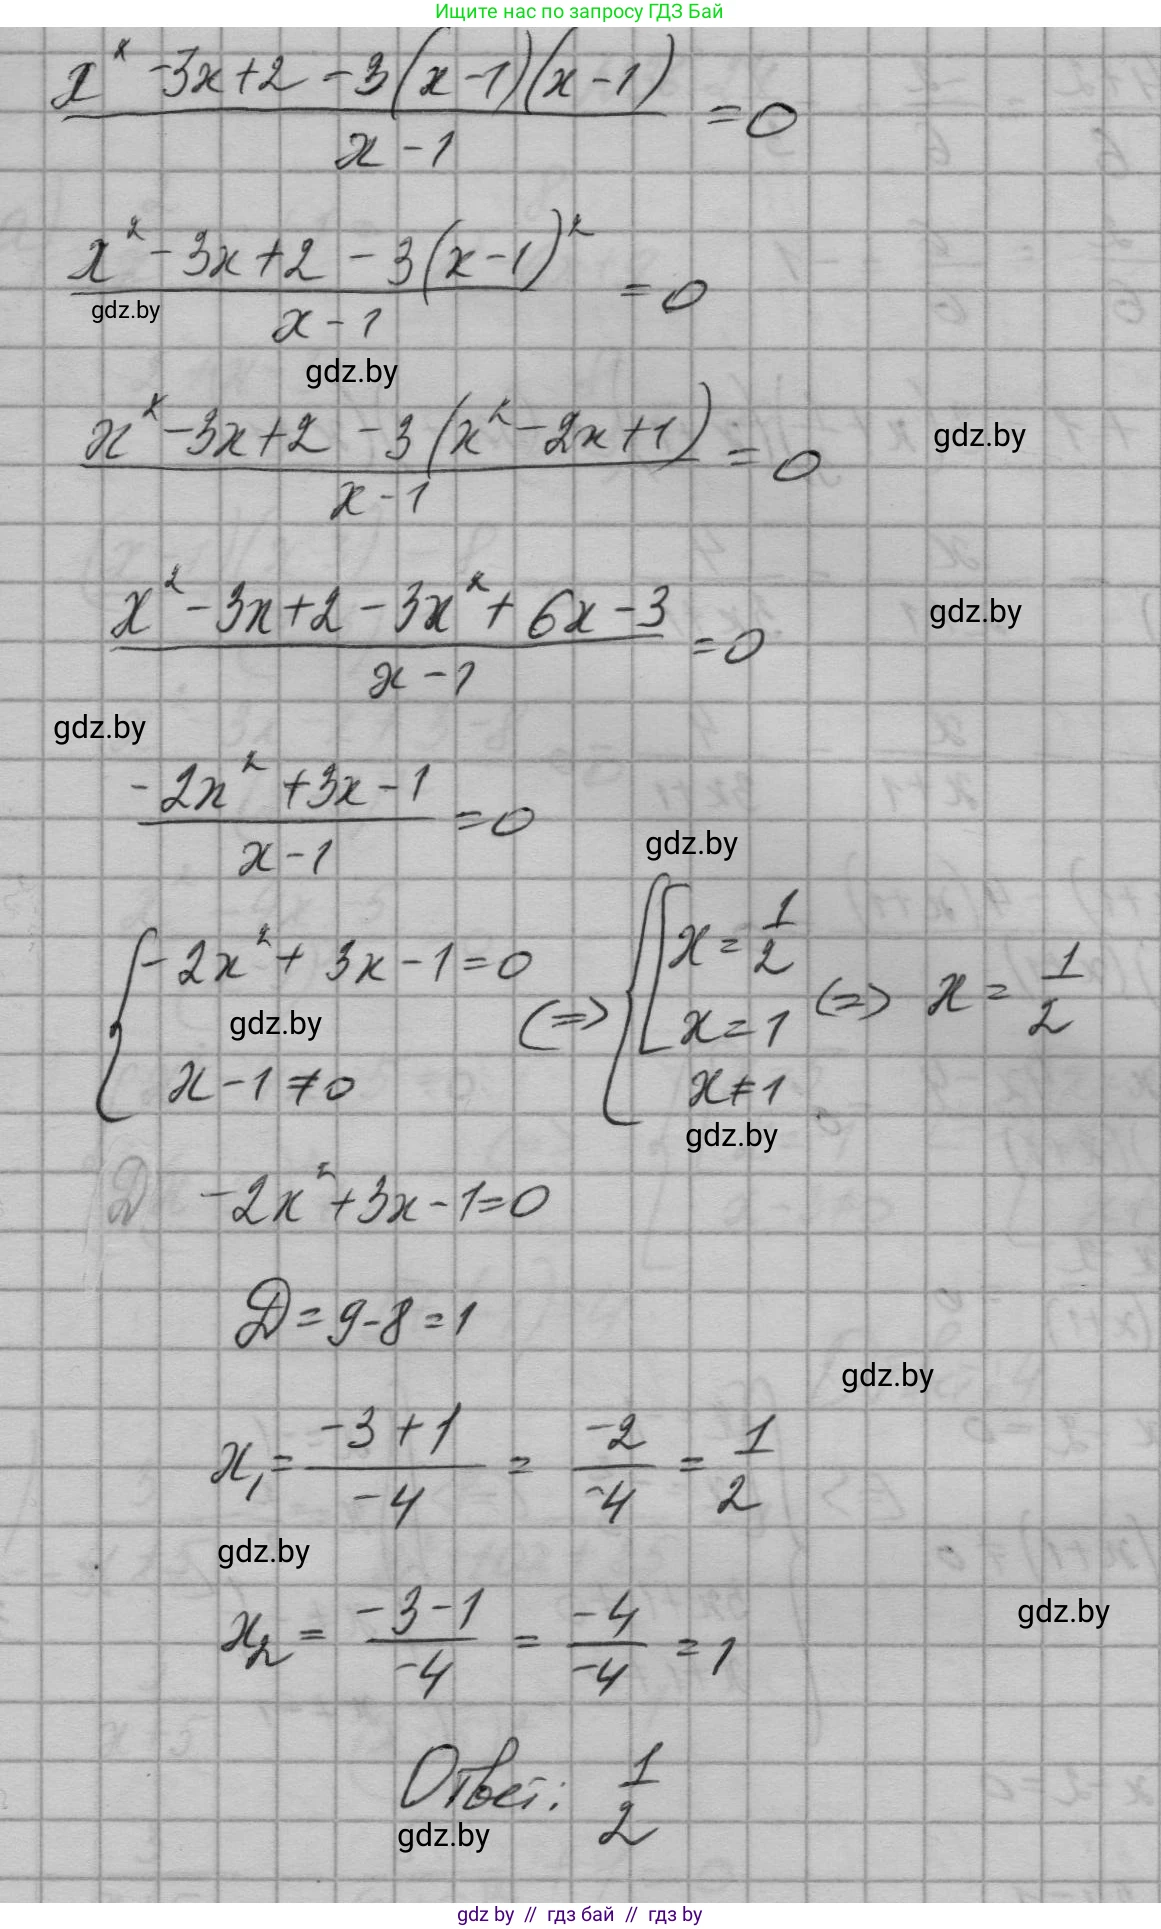 Ищите нас по запросу ГДЗ Бай
x² -3x+2 -3(x-1)(x-1)
x-1
=0
x² -3x+2 -3(x-1)²
x-1
=0
gdz.by
gdz.by
x² -3x+2 -3(x²-2x+1)
x-1
=0
gdz.by
x²-3x+2-3x²+6x-3
x-1
=0
gdz.by
gdz.by
-2x²+3x-1
x-1
=0
gdz.by
{ -2x²+3x-1=0
x-1≠0
(=>) { [ x=1/2
x=1
x≠1
(=>) x=1/2
gdz.by
gdz.by
-2x²+3x-1=0
D=9-8=1
gdz.by
x₁= -3+1/-4 = -2/-4 = 1/2
gdz.by
x₂= -3-1/-4 = -4/-4 =1
gdz.by
Ответ: 1/2
gdz.by
gdz by // гдз бай // гдз by